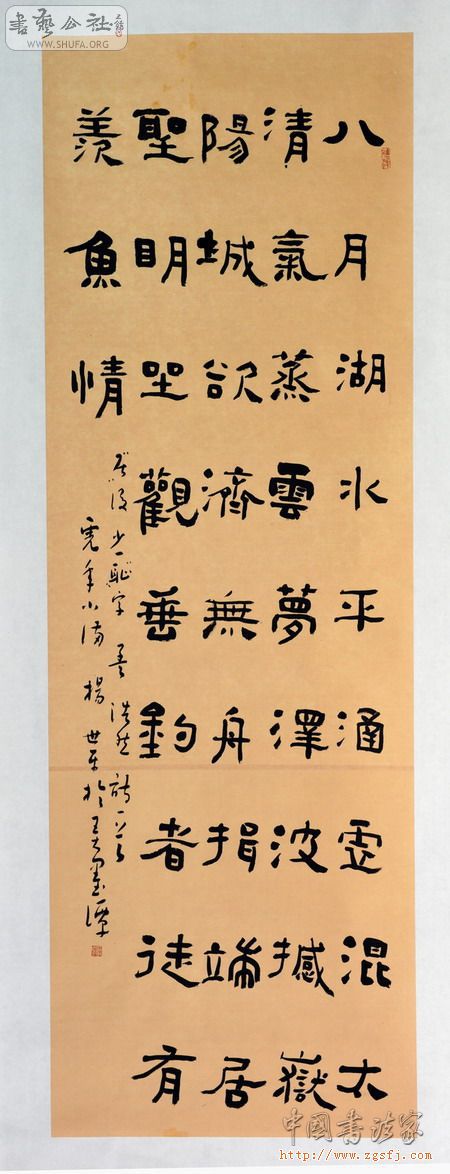 書藝公社
WWW.SHUFA.ORG
八月湖水平涵虚混太
清氣蒸雲夢澤波撼嶽
陽城欲濟無舟揖端居
聖眀坐觀垂釣者徒有
羨魚情
居後少一耻字 孟浩然詩一首
虎年小滿 楊世於墨潭
中國書法家
http://www.zgsfj.com